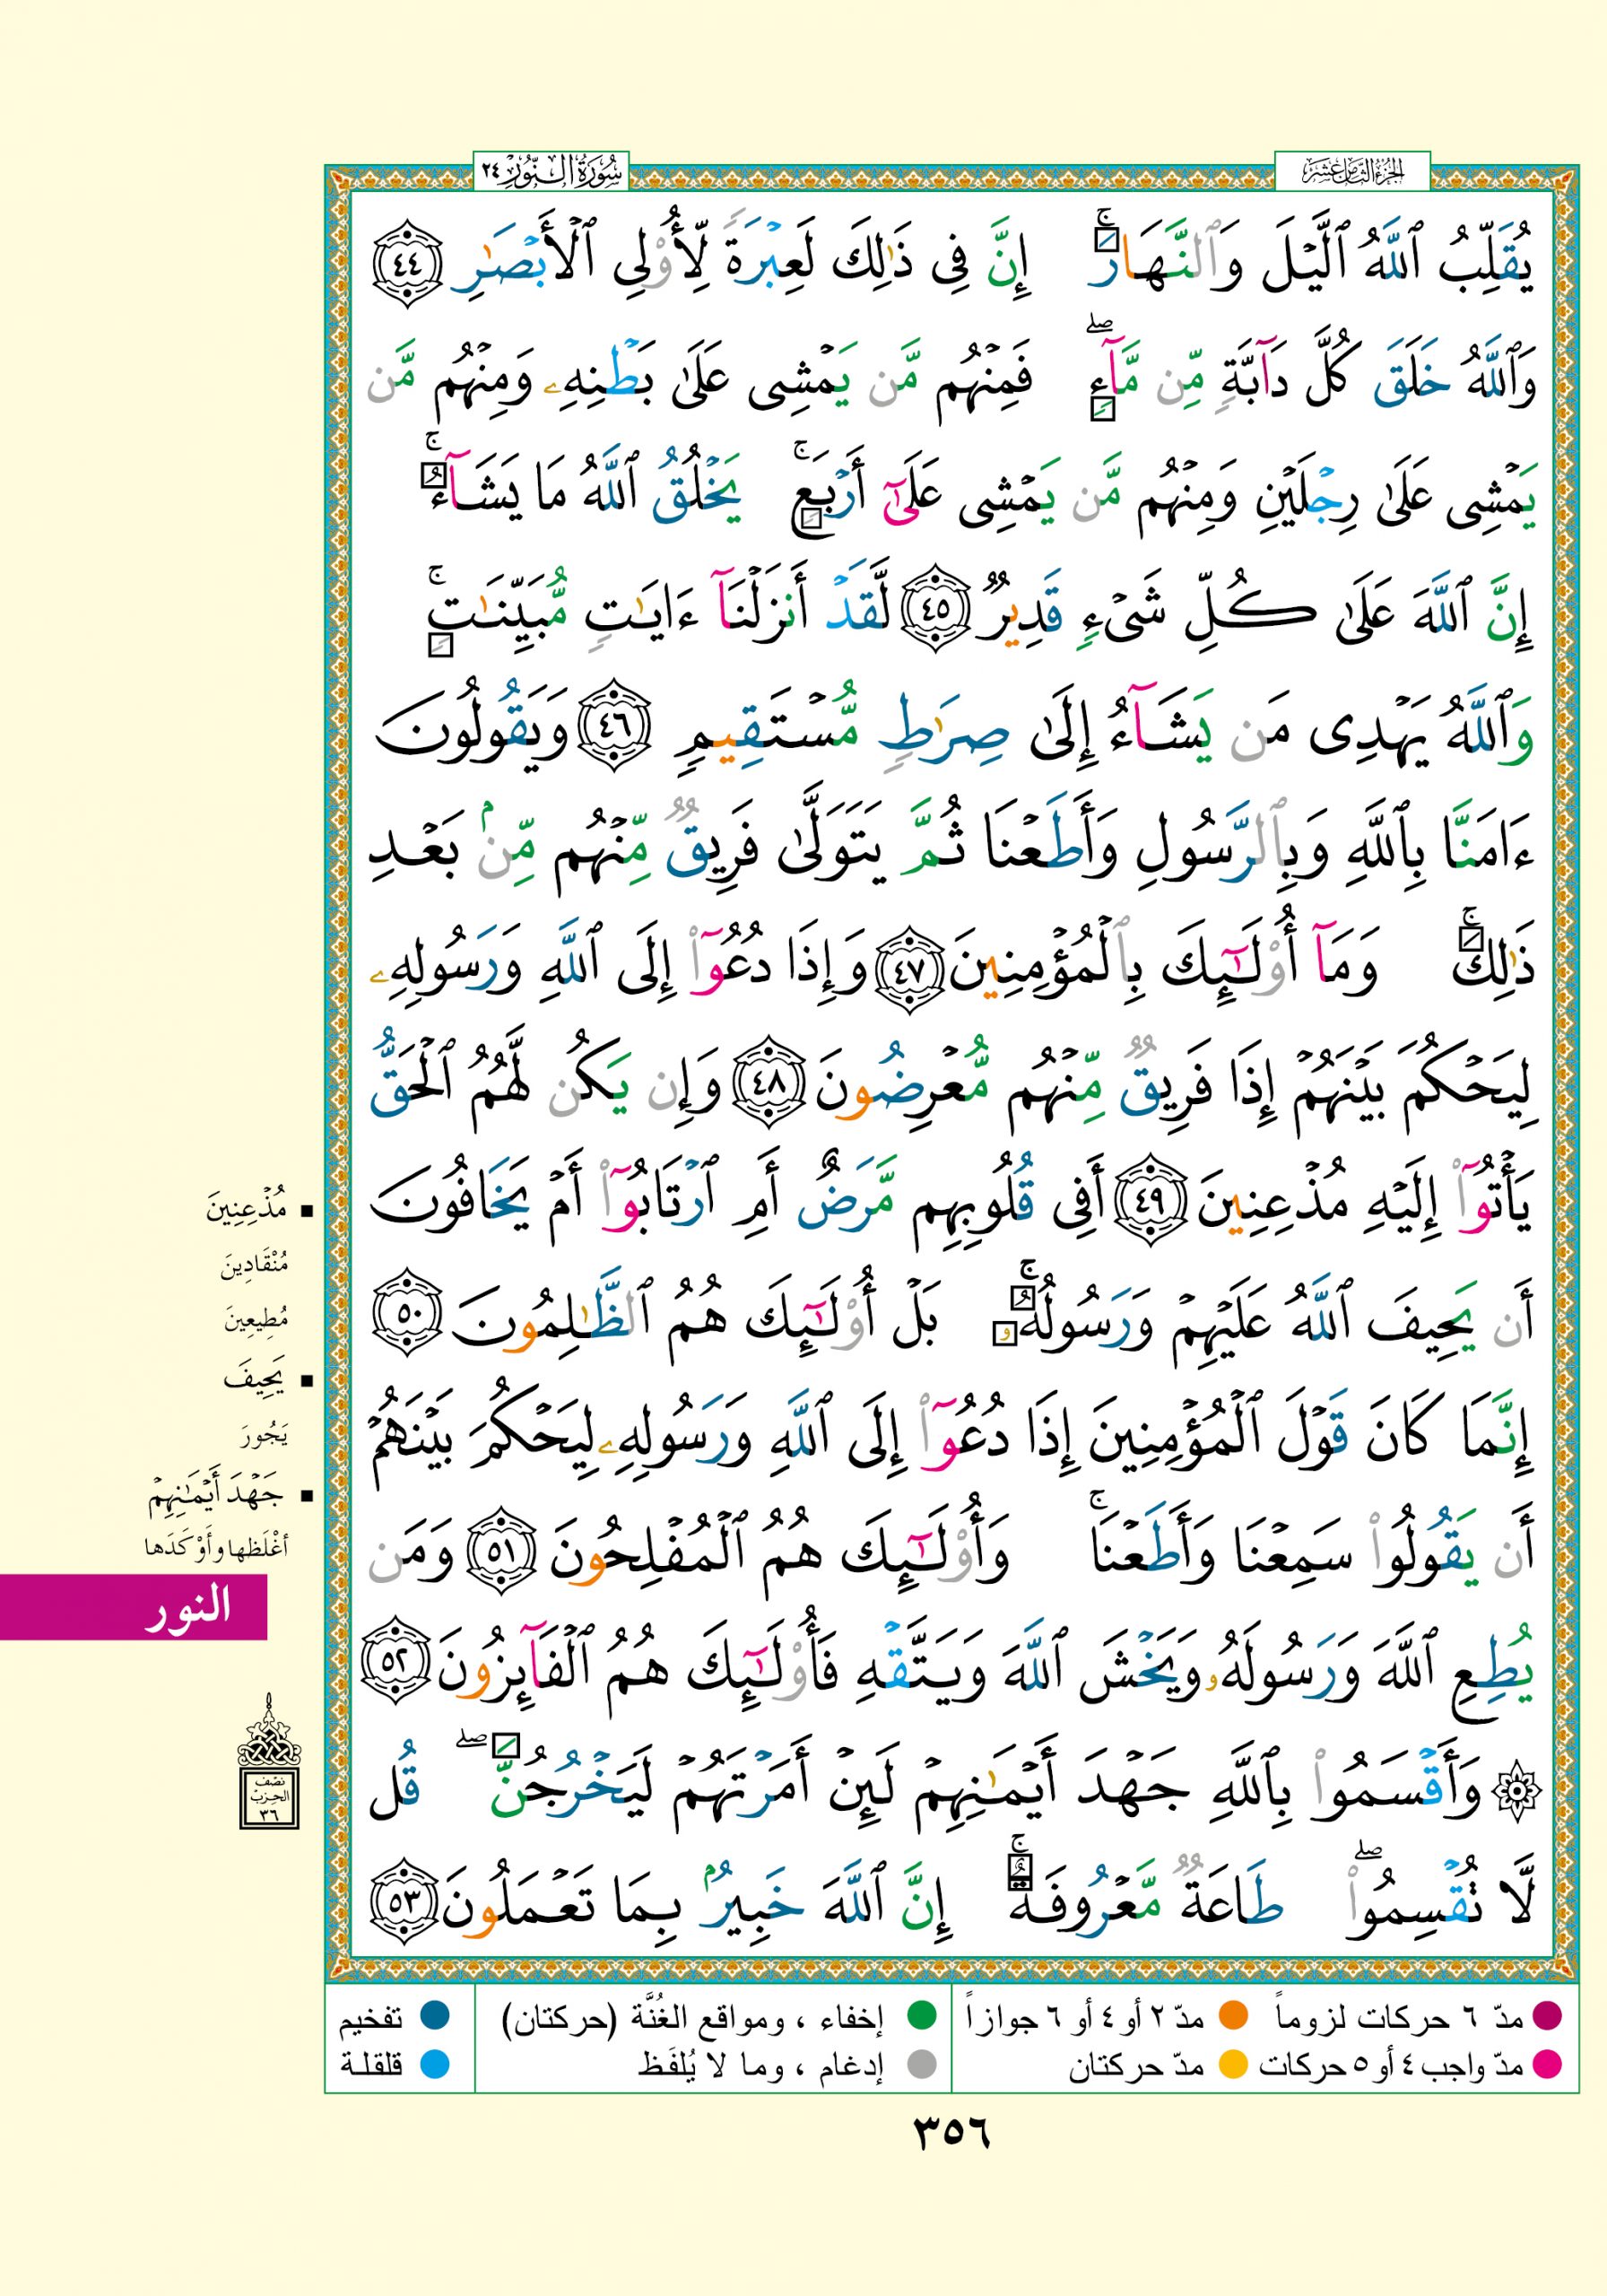 الجزء الثامن عشر
سورة النور ٢٤
يُقَلِّبُ ٱللَّهُ ٱلَّيْلَ وَٱلنَّهَارَ ۚ إِنَّ فِى ذَٰلِكَ لَعِبْرَةً لِّأُو۟لِى ٱلْأَبْصَٰرِ ٤٤
وَٱللَّهُ خَلَقَ كُلَّ دَآبَّةٍ مِّن مَّآءٍ ۖ فَمِنْهُم مَّن يَمْشِى عَلَىٰ بَطْنِهِۦ وَمِنْهُم مَّن
يَمْشِى عَلَىٰ رِجْلَيْنِ وَمِنْهُم مَّن يَمْشِى عَلَىٰٓ أَرْبَعٍ ۚ يَخْلُقُ ٱللَّهُ مَا يَشَآءُ ۚ
إِنَّ ٱللَّهَ عَلَىٰ كُلِّ شَىْءٍ قَدِيرٌ ٤٥ لَّقَدْ أَنزَلْنَآ ءَايَٰتٍ مُّبَيِّنَٰتٍ ۚ
وَٱللَّهُ يَهْدِى مَن يَشَآءُ إِلَىٰ صِرَٰطٍ مُّسْتَقِيمٍ ٤٦ وَيَقُولُونَ
ءَامَنَّا بِٱللَّهِ وَبِٱلرَّسُولِ وَأَطَعْنَا ثُمَّ يَتَوَلَّىٰ فَرِيقٌ مِّنْهُم مِّنۢ بَعْدِ
ذَٰلِكَ ۚ وَمَآ أُو۟لَٰٓئِكَ بِٱلْمُؤْمِنِينَ ٤٧ وَإِذَا دُعُوٓا۟ إِلَى ٱللَّهِ وَرَسُولِهِۦ
لِيَحْكُمَ بَيْنَهُمْ إِذَا فَرِيقٌ مِّنْهُم مُّعْرِضُونَ ٤٨ وَإِن يَكُن لَّهُمُ ٱلْحَقُّ
يَأْتُوٓا۟ إِلَيْهِ مُذْعِنِينَ ٤٩ أَفِى قُلُوبِهِم مَّرَضٌ أَمِ ٱرْتَابُوٓا۟ أَمْ يَخَافُونَ
أَن يَحِيفَ ٱللَّهُ عَلَيْهِمْ وَرَسُولُهُۥ ۚ بَلْ أُو۟لَٰٓئِكَ هُمُ ٱلظَّٰلِمُونَ ٥٠
إِنَّمَا كَانَ قَوْلَ ٱلْمُؤْمِنِينَ إِذَا دُعُوٓا۟ إِلَى ٱللَّهِ وَرَسُولِهِۦ لِيَحْكُمَ بَيْنَهُمْ
أَن يَقُولُوا۟ سَمِعْنَا وَأَطَعْنَا ۚ وَأُو۟لَٰٓئِكَ هُمُ ٱلْمُفْلِحُونَ ٥١ وَمَن
يُطِعِ ٱللَّهَ وَرَسُولَهُۥ وَيَخْشَ ٱللَّهَ وَيَتَّقْهِ فَأُو۟لَٰٓئِكَ هُمُ ٱلْفَآئِزُونَ ٥٢
۞ وَأَقْسَمُوا۟ بِٱللَّهِ جَهْدَ أَيْمَٰنِهِمْ لَئِنْ أَمَرْتَهُمْ لَيَخْرُجُنَّ ۖ قُل
لَّا تُقْسِمُوا۟ ۖ طَاعَةٌ مَّعْرُوفَةٌ ۚ إِنَّ ٱللَّهَ خَبِيرٌۢ بِمَا تَعْمَلُونَ ٥٣
■ مُذْعِنِينَ
مُنْقَادِينَ
مُطِيعِينَ
■ يَحِيفَ
يَجُورَ
■ جَهْدَ أَيْمَٰنِهِمْ
أغْلَظها وأَوْكَدَها
النور
نصف
الحزب
٣٦
مدّ ٦ حركات لزوماً
مدّ ٢ أو ٤ أو ٦ جوازاً
إخفاء ، ومواقع الغُنَّة (حركتان)
تفخيم
مدّ واجب ٤ أو ٥ حركات
مدّ حركتان
إدغام ، وما لا يُلفَظ
قلقلة
٣٥٦